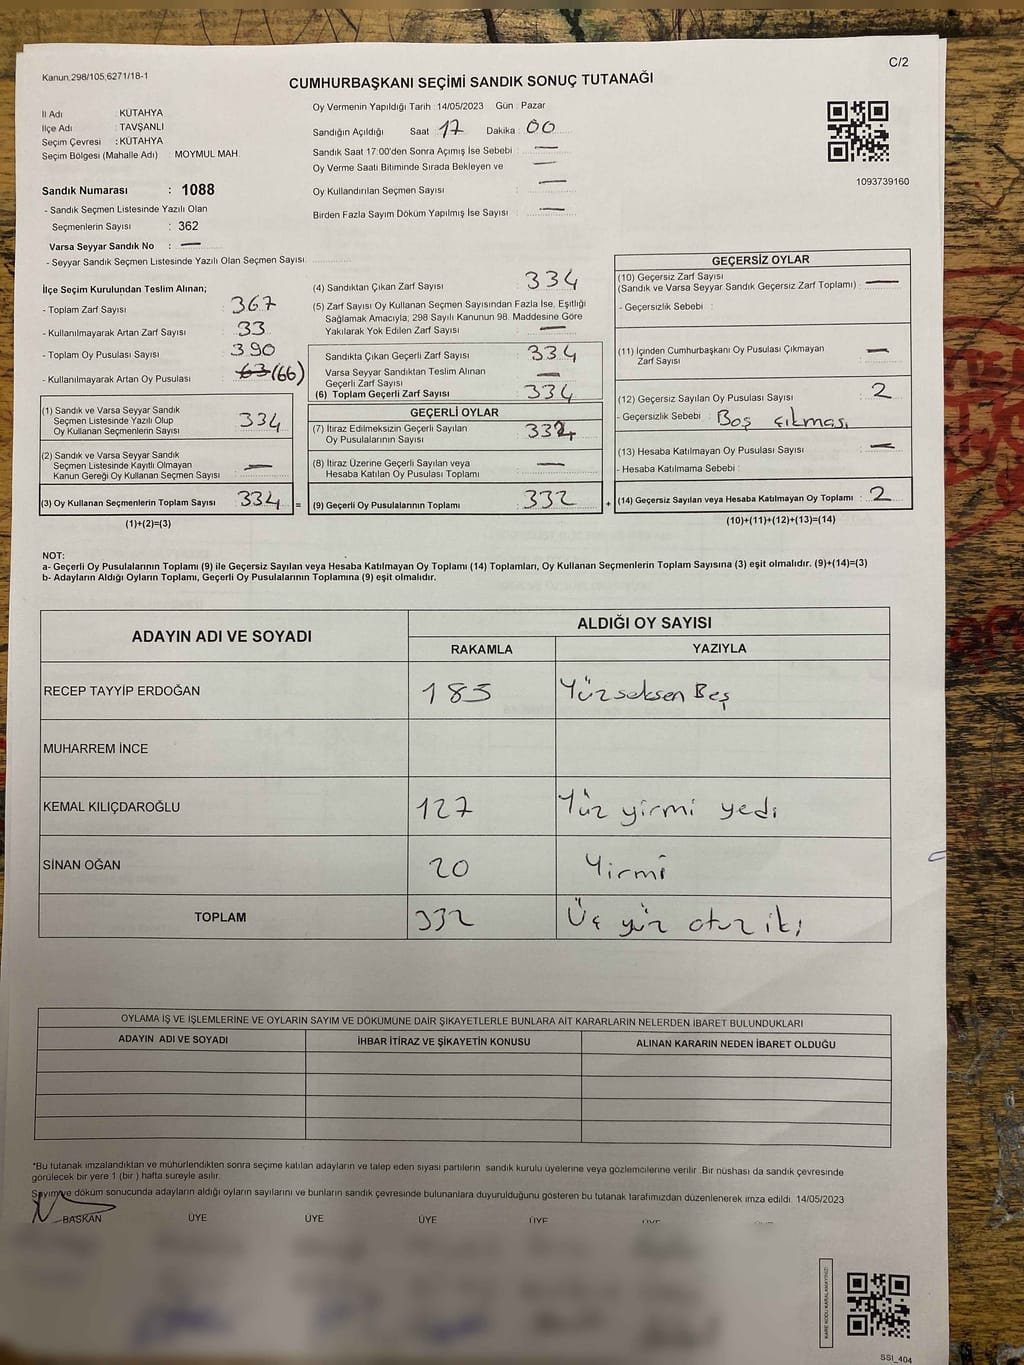 Kanun 298/105,6271/18-1
C/2
CUMHURBAŞKANI SEÇİMİ SANDIK SONUÇ TUTANAĞI
İl Adı : KÜTAHYA
İlçe Adı : TAVŞANLI
Seçim Çevresi : KÜTAHYA
Seçim Bölgesi (Mahalle Adı) : MOYMUL MAH.
Sandık Numarası : 1088
- Sandık Seçmen Listesinde Yazılı Olan
Seçmenlerin Sayısı : 362
Varsa Seyyar Sandık No : —
- Seyyar Sandık Seçmen Listesinde Yazılı Olan Seçmen Sayısı
Oy Vermenin Yapıldığı Tarih : 14/05/2023 Gün : Pazar
Sandığın Açıldığı Saat 17 Dakika : 00
Sandık Saat 17:00'den Sonra Açımış İse Sebebi : —
Oy Verme Saati Bitiminde Sırada Bekleyen ve —
Oy Kullandırılan Seçmen Sayısı : —
Birden Fazla Sayım Döküm Yapılmış İse Sayısı : —
1093739160
İlçe Seçim Kurulundan Teslim Alınan;
- Toplam Zarf Sayısı : 367
- Kullanılmayarak Artan Zarf Sayısı : 33
- Toplam Oy Pusulası Sayısı : 390
- Kullanılmayarak Artan Oy Pusulası : 63 (66)
(1) Sandık ve Varsa Seyyar Sandık
Seçmen Listesinde Yazılı Olup
Oy Kullanan Seçmenlerin Sayısı : 334
(2) Sandık ve Varsa Seyyar Sandık
Seçmen Listesinde Kayıtlı Olmayan
Kanun Gereği Oy Kullanan Seçmen Sayısı : —
(3) Oy Kullanan Seçmenlerin Toplam Sayısı : 334 =
(1)+(2)=(3)
(4) Sandıktan Çıkan Zarf Sayısı : 334
(5) Zarf Sayısı Oy Kullanan Seçmen Sayısından Fazla İse, Eşitliği
Sağlamak Amacıyla; 298 Sayılı Kanunun 98. Maddesine Göre
Yakılarak Yok Edilen Zarf Sayısı : —
Sandıkta Çıkan Geçerli Zarf Sayısı : 334
Varsa Seyyar Sandıktan Teslim Alınan
Geçerli Zarf Sayısı : —
(6) Toplam Geçerli Zarf Sayısı : 334
GEÇERLİ OYLAR
(7) İtiraz Edilmeksizin Geçerli Sayılan
Oy Pusulalarının Sayısı : 332
(8) İtiraz Üzerine Geçerli Sayılan veya
Hesaba Katılan Oy Pusulası Toplamı : —
(9) Geçerli Oy Pusulalarının Toplamı : 332 +
GEÇERSİZ OYLAR
(10) Geçersiz Zarf Sayısı
(Sandık ve Varsa Seyyar Sandık Geçersiz Zarf Toplamı) : —
- Geçersizlik Sebebi :
(11) İçinden Cumhurbaşkanı Oy Pusulası Çıkmayan
Zarf Sayısı : —
(12) Geçersiz Sayılan Oy Pusulası Sayısı : 2
- Geçersizlik Sebebi : Boş çıkması
(13) Hesaba Katılmayan Oy Pusulası Sayısı : —
- Hesaba Katılmama Sebebi :
(14) Geçersiz Sayılan veya Hesaba Katılmayan Oy Toplamı : 2
(10)+(11)+(12)+(13)=(14)
NOT:
a- Geçerli Oy Pusulalarının Toplamı (9) ile Geçersiz Sayılan veya Hesaba Katılmayan Oy Toplamı (14) Toplamları, Oy Kullanan Seçmenlerin Toplam Sayısına (3) eşit olmalıdır. (9)+(14)=(3)
b- Adayların Aldığı Oyların Toplamı, Geçerli Oy Pusulalarının Toplamına (9) eşit olmalıdır.
ADAYIN ADI VE SOYADI
ALDIĞI OY SAYISI
RAKAMLA YAZIYLA
RECEP TAYYİP ERDOĞAN 185 Yüzseksen Beş
MUHARREM İNCE
KEMAL KILIÇDAROĞLU 127 Yüz yirmi yedi
SİNAN OĞAN 20 Yirmi
TOPLAM 332 Üç yüz otuz iki
OYLAMA İŞ VE İŞLEMLERİNE VE OYLARIN SAYIM VE DÖKÜMÜNE DAİR ŞİKAYETLERLE BUNLARA AİT KARARLARIN NELERDEN İBARET BULUNDUKLARI
ADAYIN ADI VE SOYADI İHBAR İTİRAZ VE ŞİKAYETİN KONUSU ALINAN KARARIN NEDEN İBARET OLDUĞU
*Bu tutanak imzalandıktan ve mühürlendikten sonra seçime katılan adayların ve talep eden siyasi partilerin sandık kurulu üyelerine veya gözlemcilerine verilir. Bir nüshası da sandık çevresinde
görülecek bir yere 1 (bir) hafta süreyle asılır.
Sayım ve döküm sonucunda adayların aldığı oyların sayılarını ve bunların sandık çevresinde bulunanlara duyurulduğunu gösteren bu tutanak tarafımızdan düzenlenerek imza edildi. 14/05/2023
BAŞKAN ÜYE ÜYE ÜYE ÜYE
KARE KODU KARALAMAYINIZ!
SSI_404